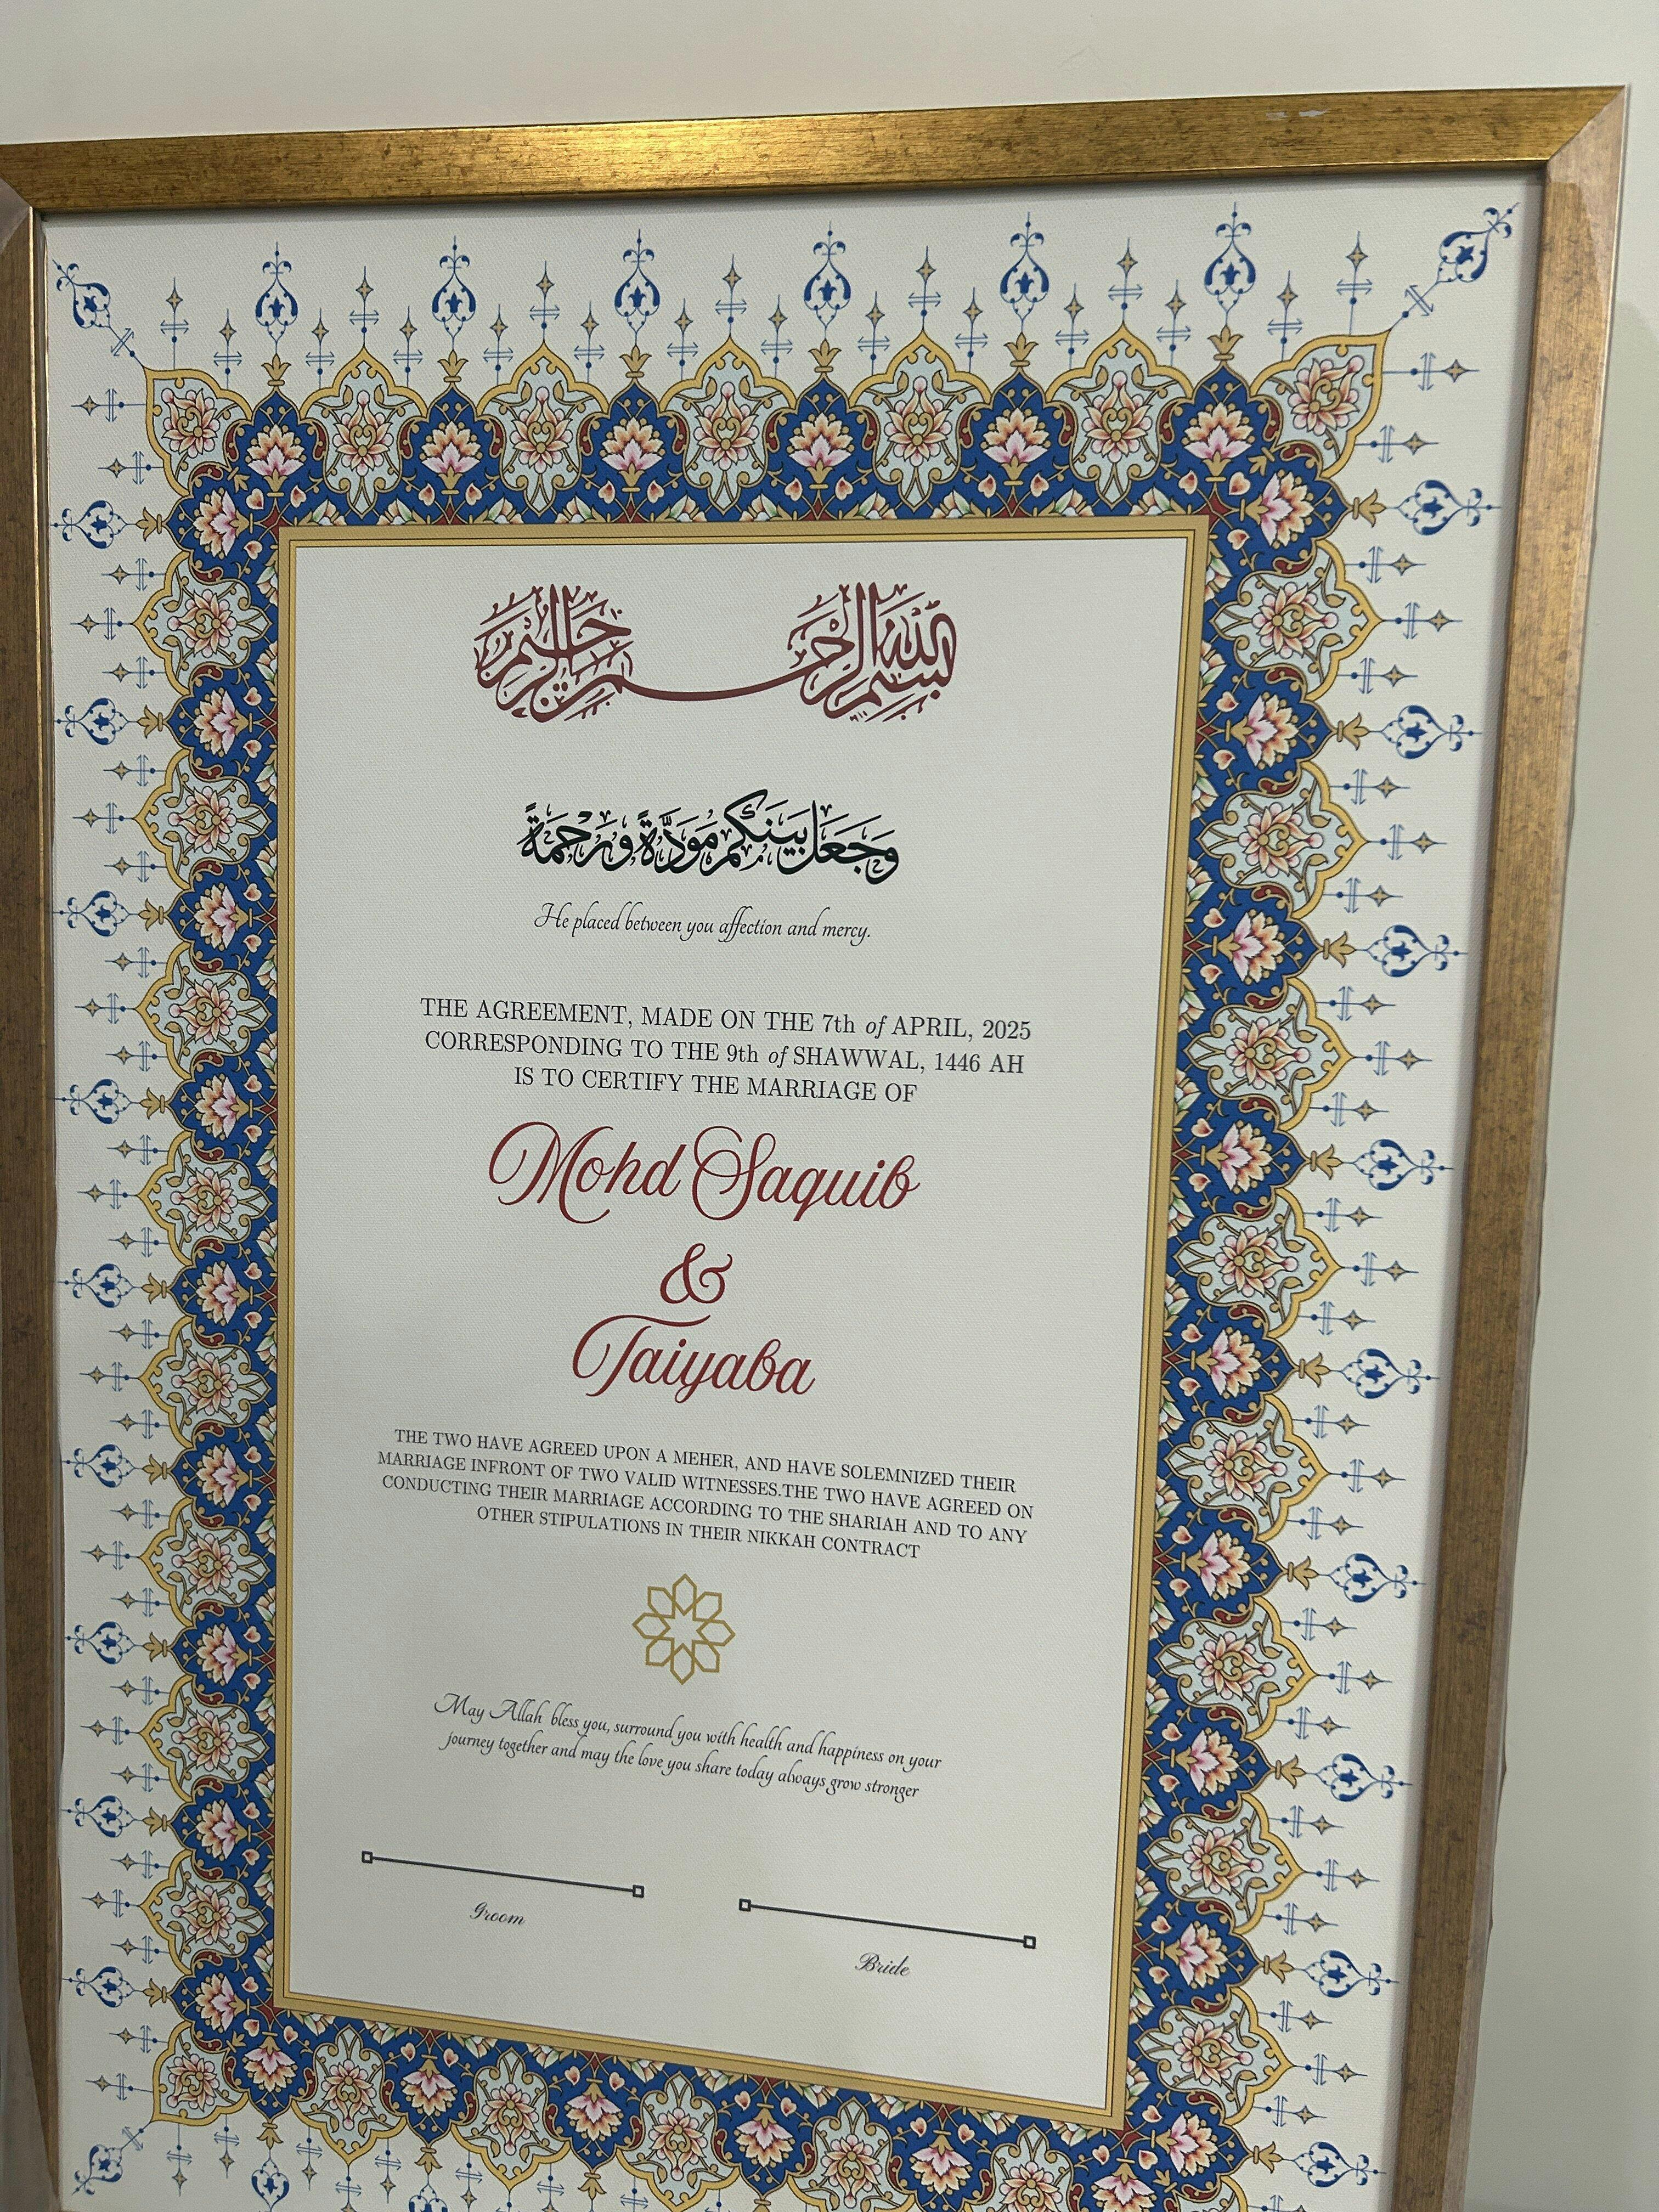 بسم الله الرحمن الرحيم
وَجَعَلَ بَيْنَكُم مَوَدَّةً وَرَحْمَةً
He placed between you affection and mercy.
THE AGREEMENT, MADE ON THE 7th of APRIL, 2025
CORRESPONDING TO THE 9th of SHAWWAL, 1446 AH
IS TO CERTIFY THE MARRIAGE OF
Mohd Saquib
&
Taiyaba
THE TWO HAVE AGREED UPON A MEHER, AND HAVE SOLEMNIZED THEIR
MARRIAGE INFRONT OF TWO VALID WITNESSES.THE TWO HAVE AGREED ON
CONDUCTING THEIR MARRIAGE ACCORDING TO THE SHARIAH AND TO ANY
OTHER STIPULATIONS IN THEIR NIKKAH CONTRACT
May Allah bless you, surround you with health and happiness on your
journey together and may the love you share today always grow stronger
Groom
Bride